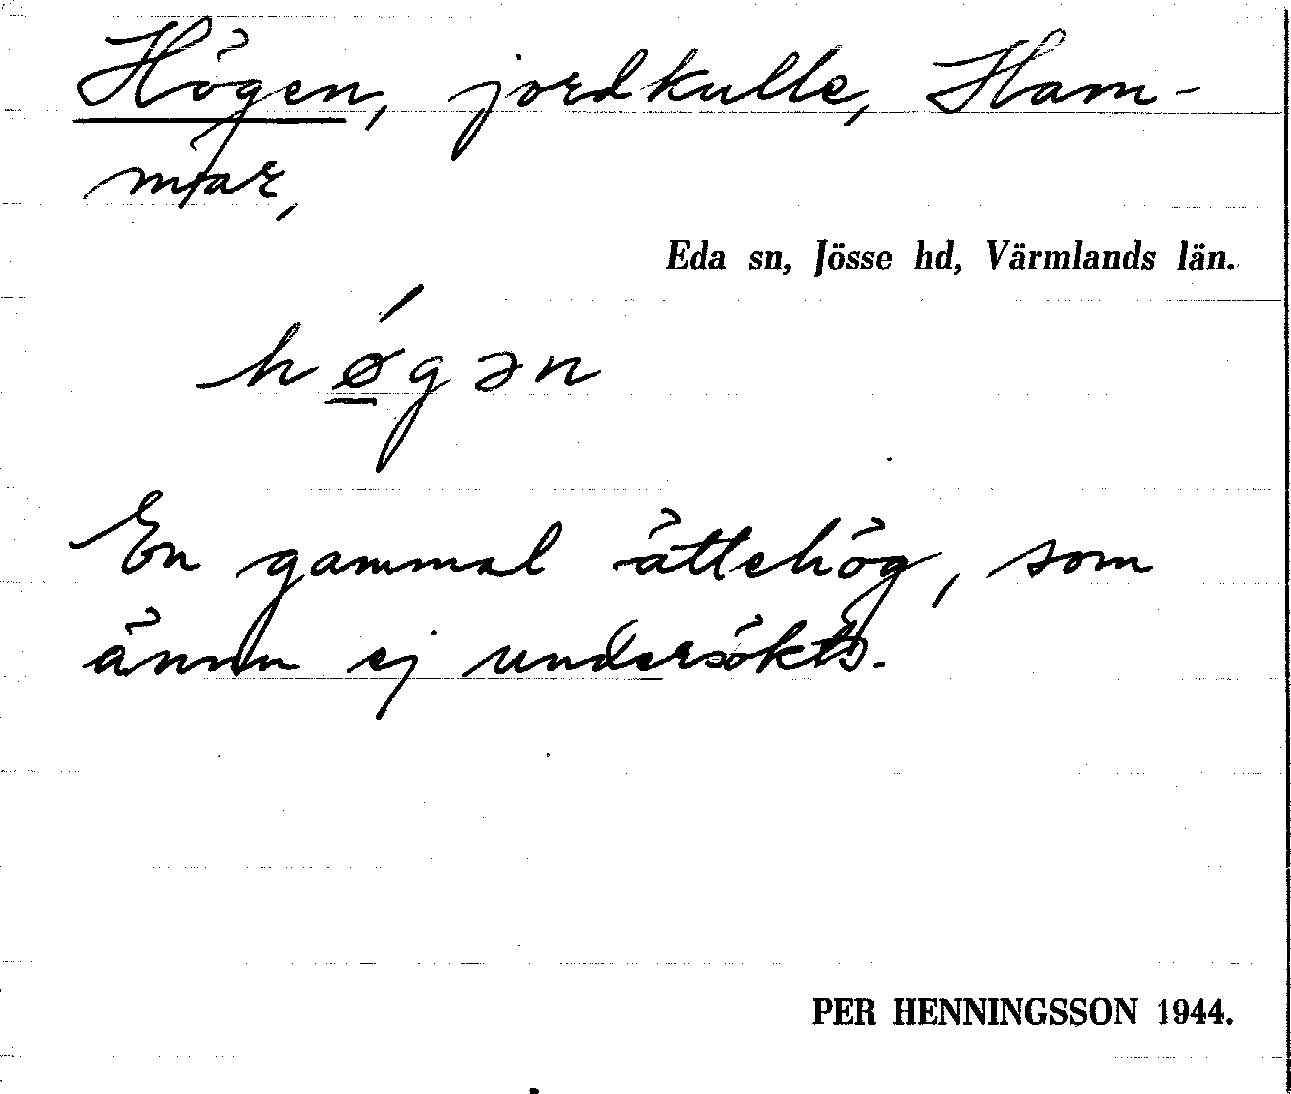 Högen, jordkulle, Ham-
mar,
Eda sn, Jösse hd, Värmlands län.
hǿ̱gən
En gammal ättehög, som
ännu ej undersökts.
PER HENNINGSSON 1944.